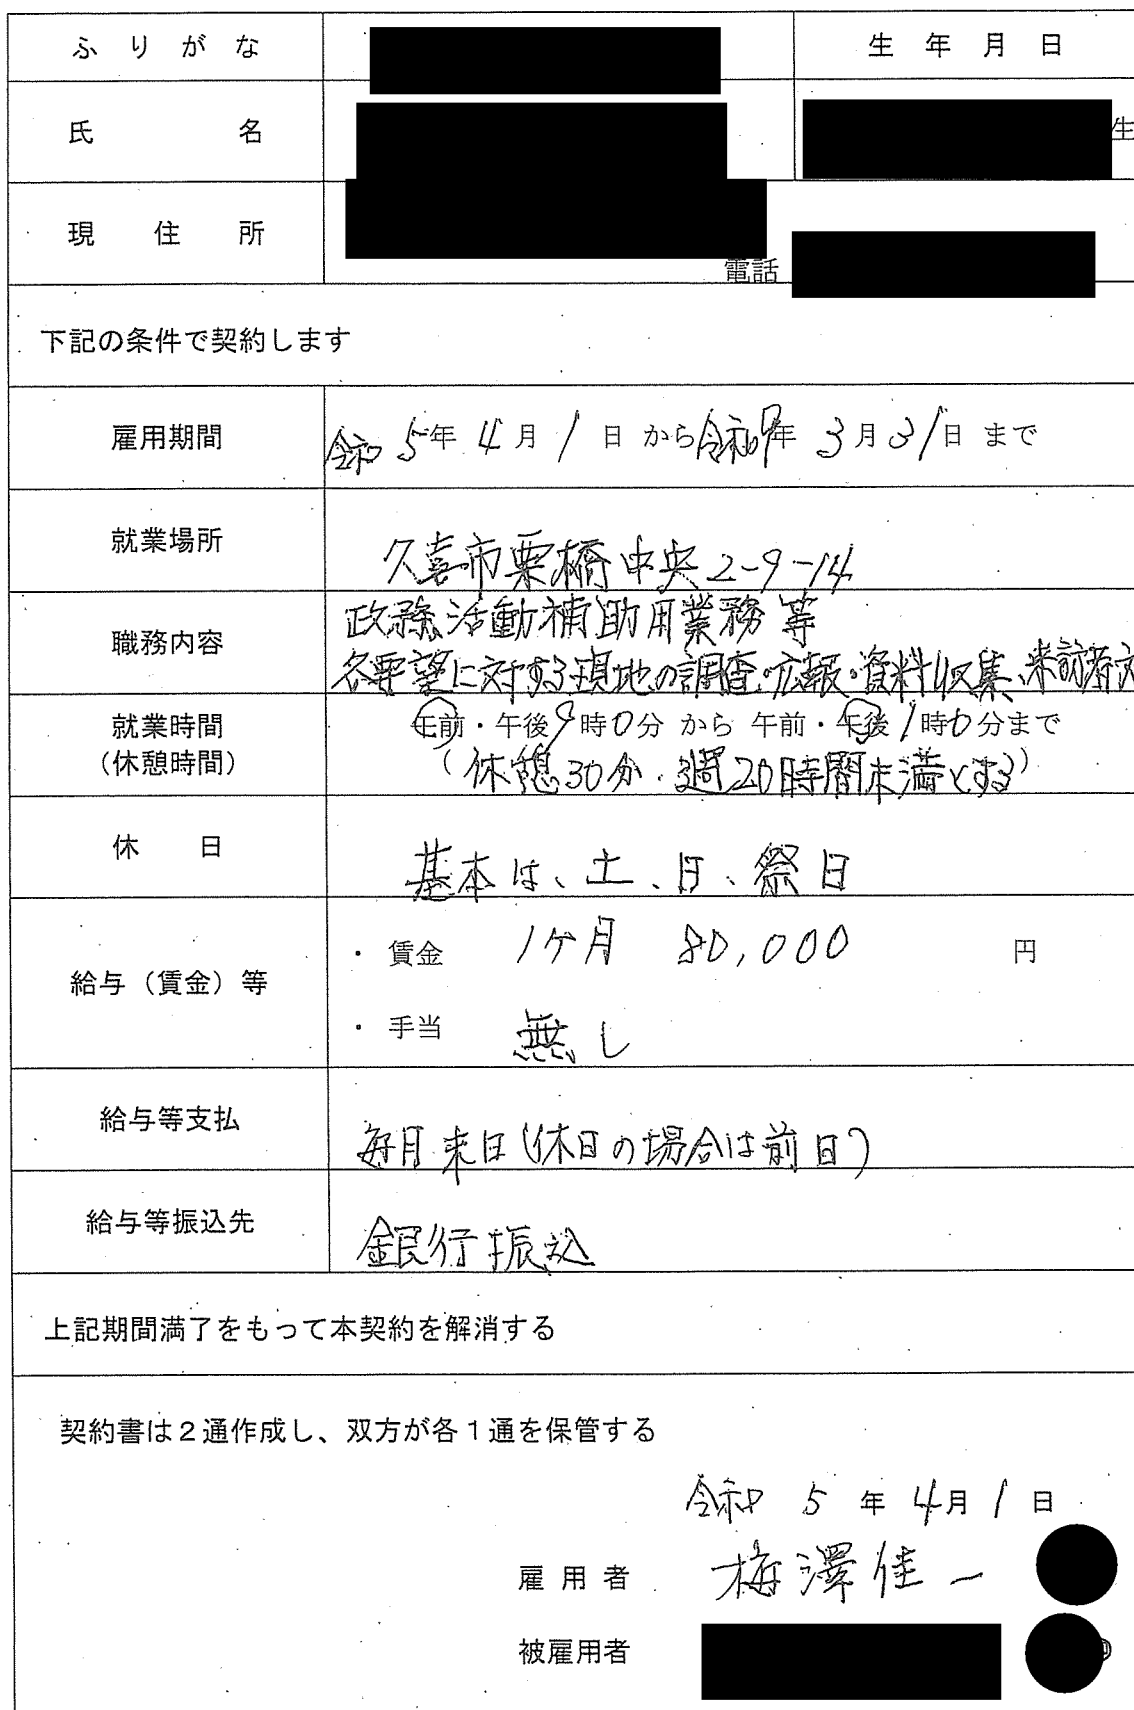 ふりがな
生年月日
氏名
生
現住所
電話
下記の条件で契約します
雇用期間
令和5年4月1日から令和9年3月31日まで
就業場所
久喜市栗橋中央2-9-14
職務内容
政務活動補助用業務等
各要望に対する現地の調査・広報・資料収集、来訪者対
就業時間
午前・午後9時0分から午前・午後1時0分まで
(休憩時間)
(休憩30分・週20時間未満とする)
休日
基本は、土、日、祭日
給与(賃金)等
・賃金 1ヶ月 80,000 円
・手当 無し
給与等支払
毎月末日(休日の場合は前日)
給与等振込先
銀行振込
上記期間満了をもって本契約を解消する
契約書は2通作成し、双方が各1通を保管する
令和5年4月1日
雇用者 梅澤佳一
被雇用者